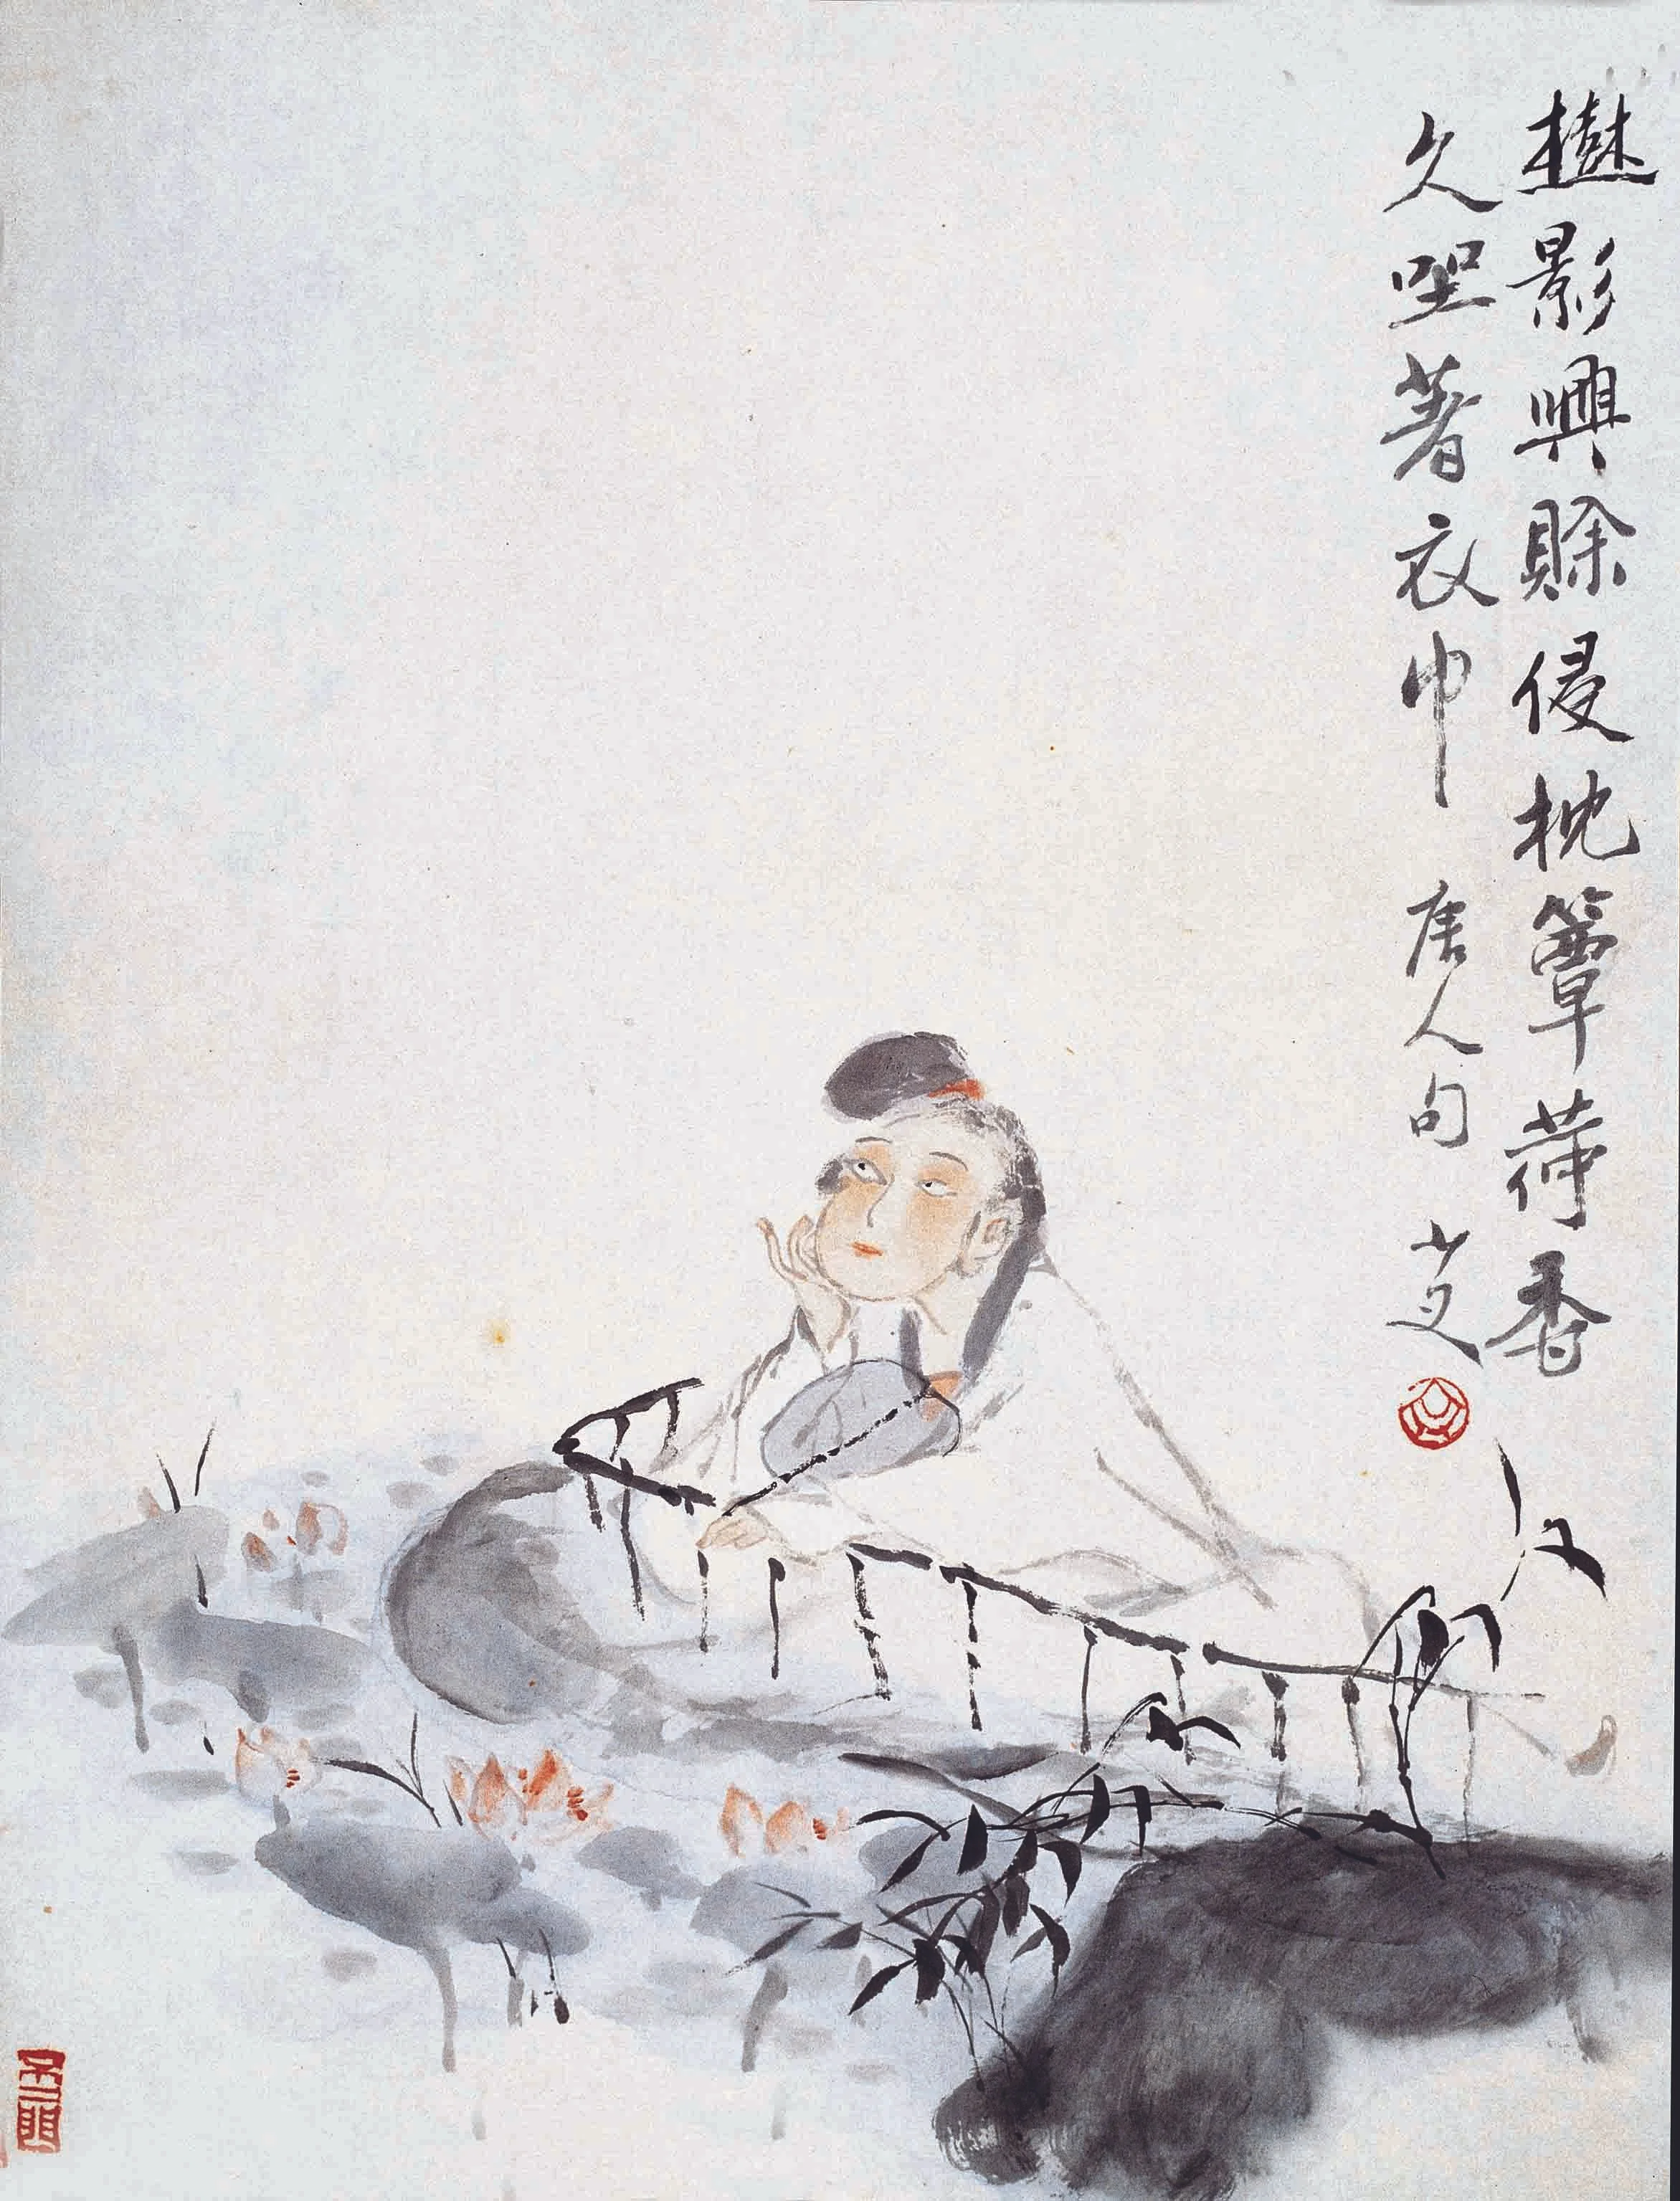 樹影興賒侵枕簟荷香
久坐著衣巾 唐人句